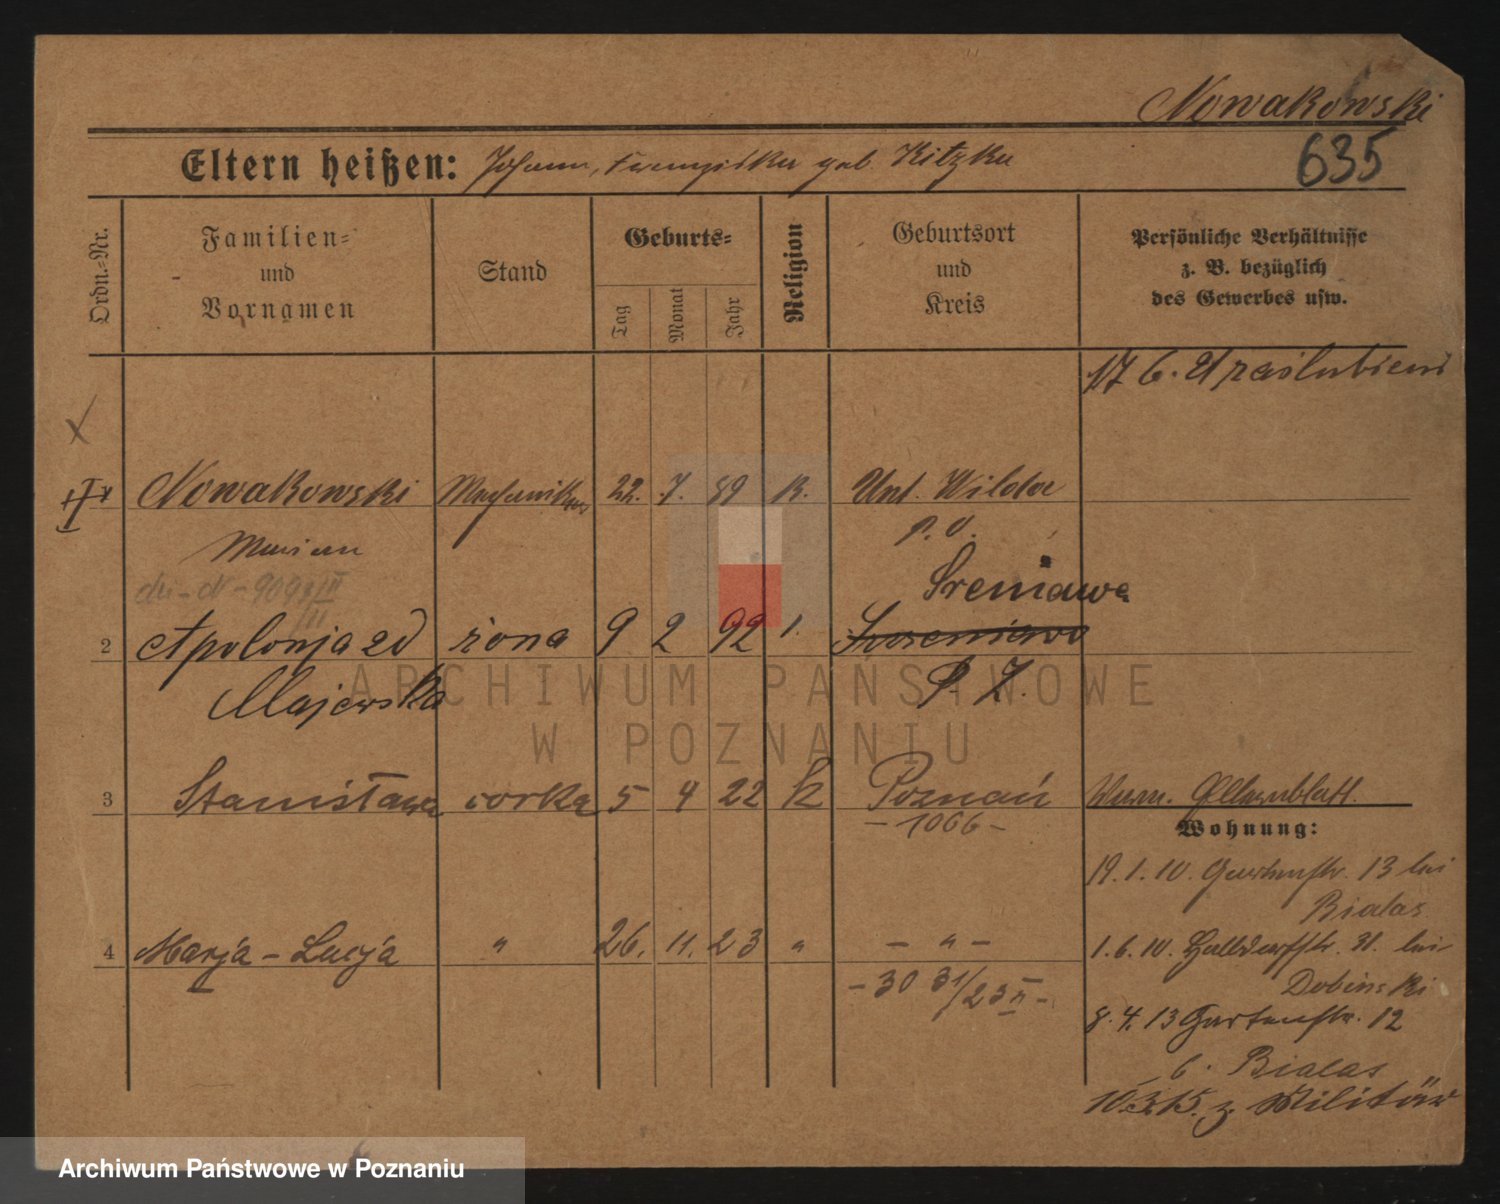 Nowakowski
635
Eltern heißen: Johann, Franziska geb. Kitzka
Ordn.-Nr.
Familien-
und
Vornamen
Stand
Geburts-
Tag
Monat
Jahr
Religion
Geburtsort
und
Kreis
Persönliche Verhältnisse
z. B. bezüglich
des Gewerbes usw.
17 6. 21 zaślubieni
Nowakowski Mechaniker 22. 7. 89 K. Unt. Wilda
Marian P. O.
Sreniawa
2 Apolonja zd żona 9 2 92
Majewska P. Z.
3 Stanisława córka 5 4 22 k Poznań
- 1066 -
Wohnung:
19.1.10. Gartenstr. 13 bei
Bialas
4 Marja - Lucja " 26. 11. 23 " - " -
1.6.10. Halldorfstr. 31. bei
Dobinski
8.4.13 Gartenstr. 12
b. Bialas
10.3.15. z. Militär
ARCHIWUM PAŃSTWOWE
W POZNANIU
Archiwum Państwowe w Poznaniu